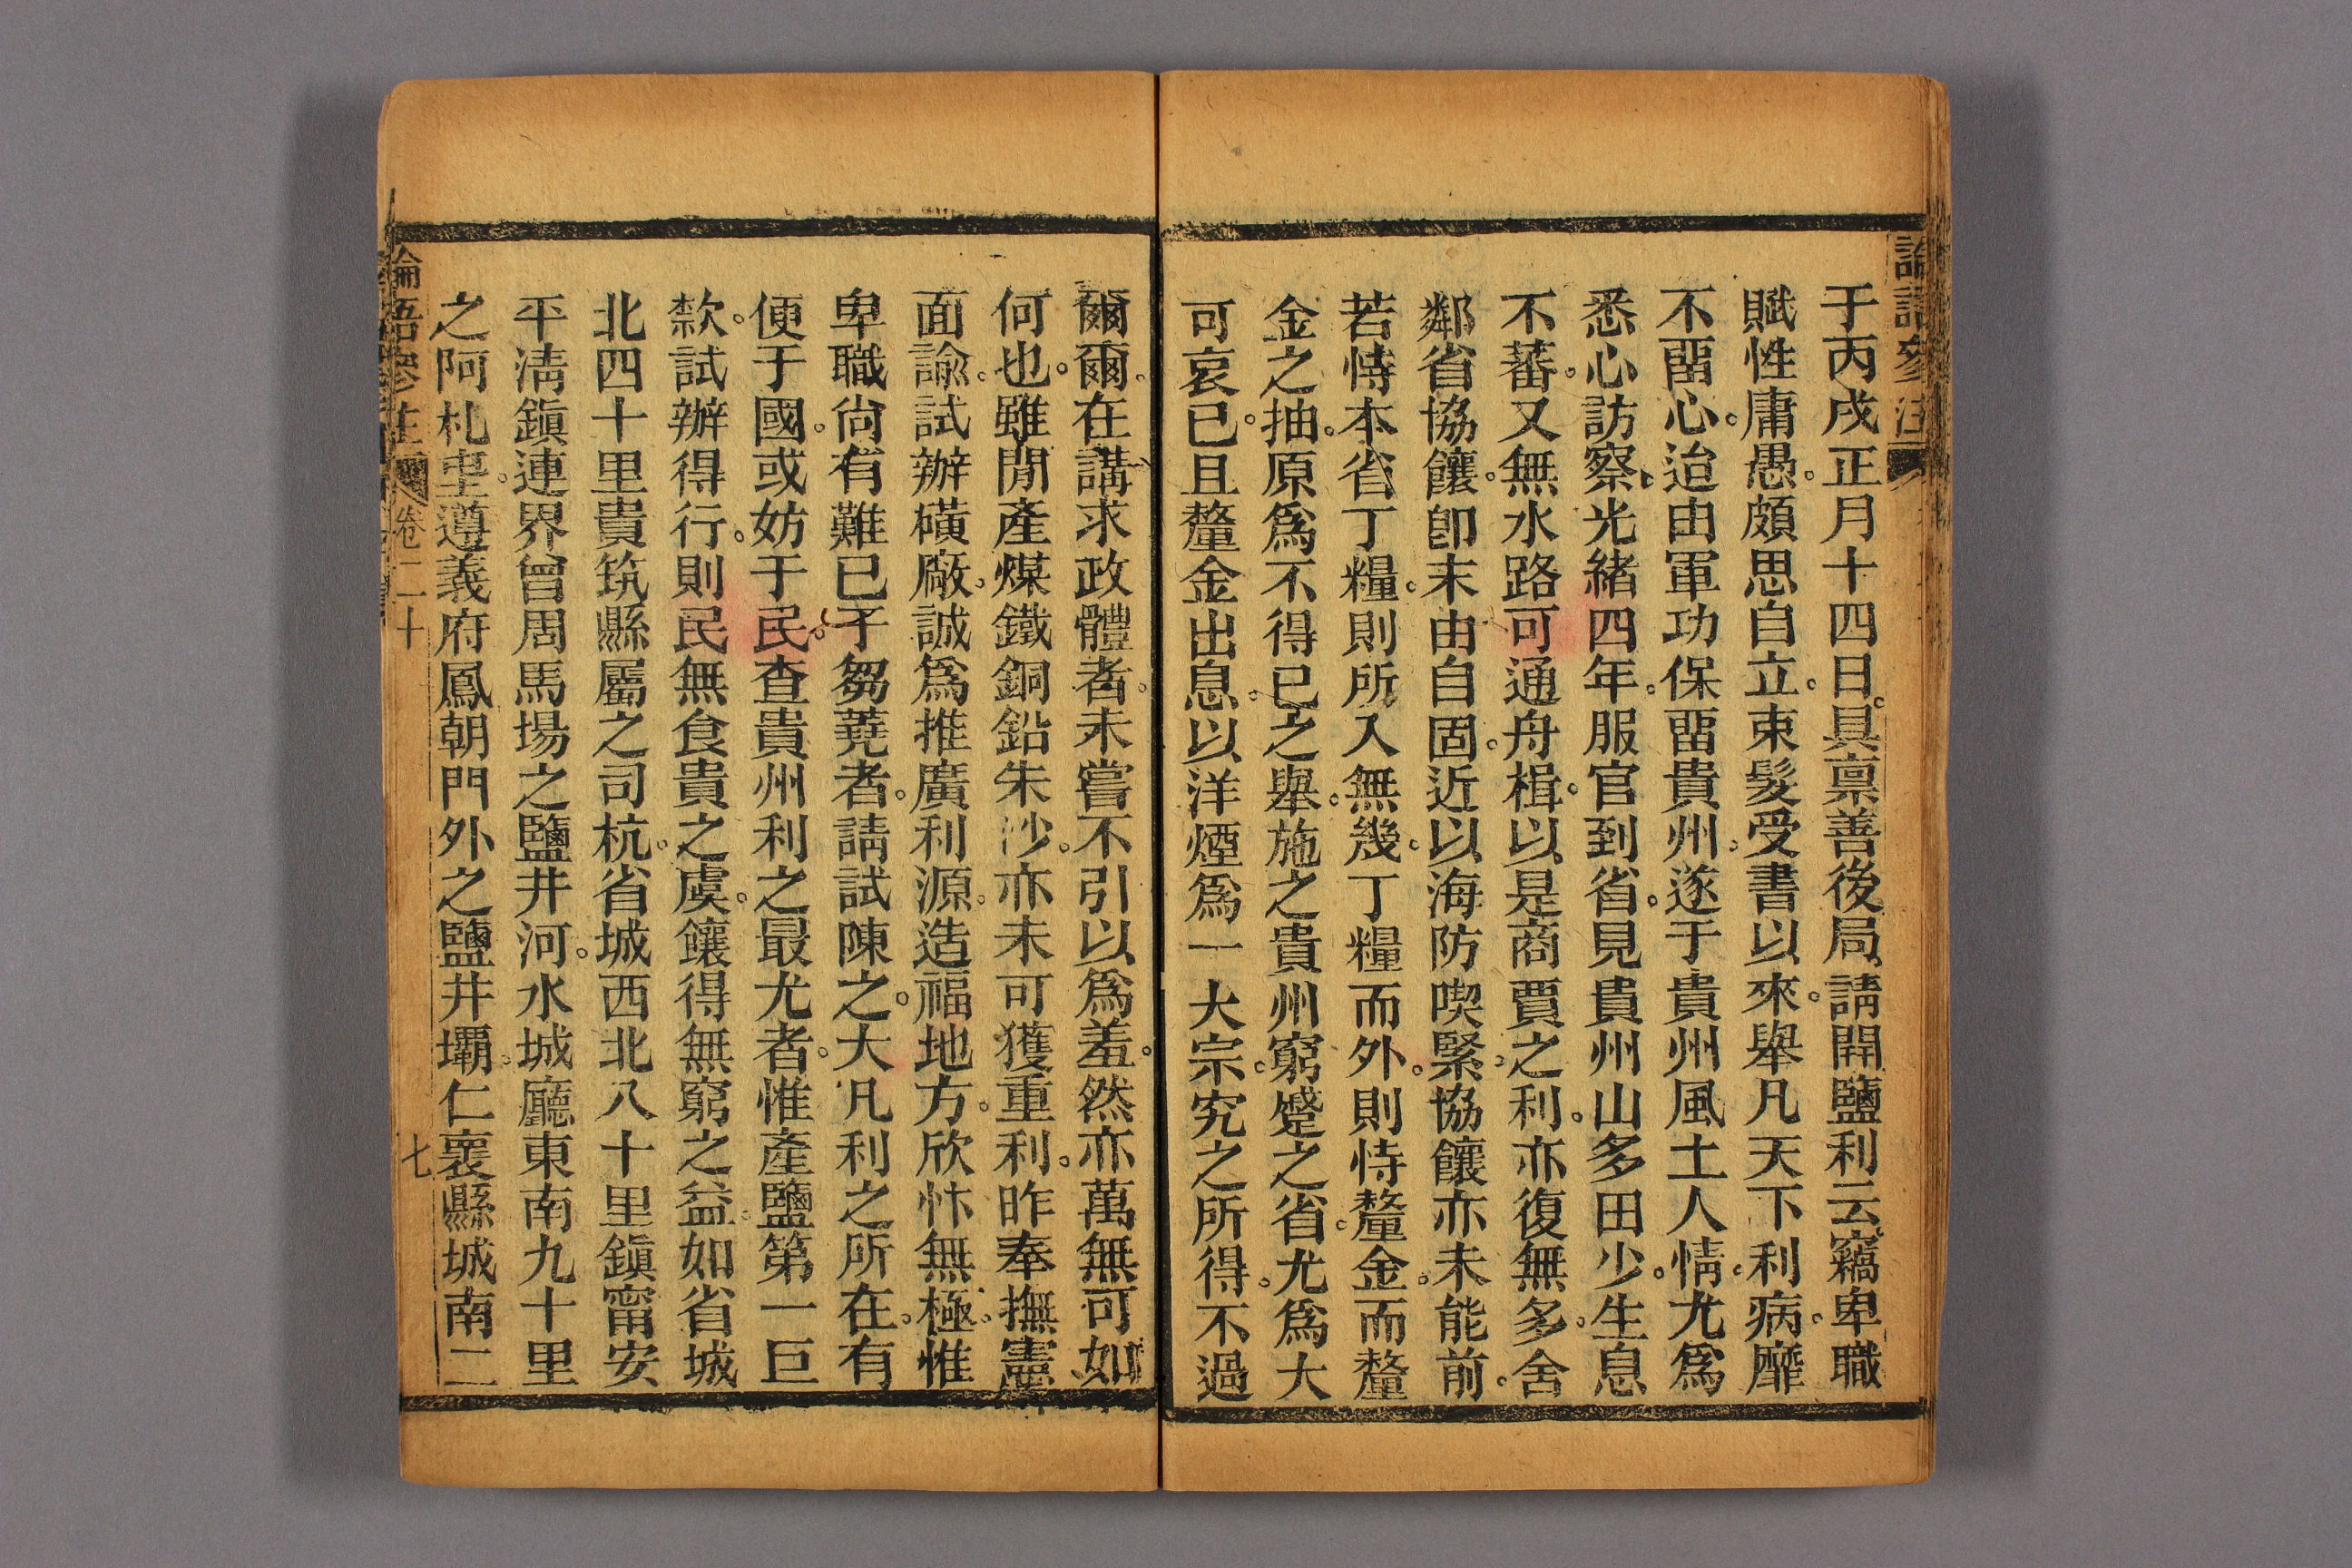 于丙戌正月十四日。具禀善後局、請開鹽利云、竊卑職
賦性庸愚。頗思自立。束髮受書以來。舉凡天下利病。靡
不畱心。迨由軍功保畱貴州。遂于貴州風土人情。尤爲
悉心訪察。光緒四年。服官到省。見貴州山多田少。生息
不蕃。又無水路可通舟楫。以是商賈之利。亦復無多。舍
鄰省協饟。卽末由自固。近以海防喫緊。協饟亦未能前。
若恃本省丁糧。則所入無幾。丁糧而外。則恃釐金。而釐
金之抽。原爲不得已之舉。施之貴州窮蹙之省。尤爲大
可哀已。且釐金出息。以洋煙爲一大宗。究之所得。不過
爾爾。在講求政體者。未嘗不引以爲羞。然亦萬無可如
何也。雖閒產煤鐵銅鉛朱沙。亦未可獲重利。昨奉撫憲
面諭。試辦礦廠。誠爲推廣利源。造福地方。欣忭無極。惟
卑職尙有難已于芻蕘者。請試陳之。大凡利之所在。有
便于國。或妨于民。查貴州利之最尤者。惟產鹽第一巨
欵。試辦得行。則民無食貴之虞。饟得無窮之益。如省城
北四十里貴筑縣屬之司杭。省城西北八十里鎭甯安
平淸鎭連界曾周馬場之鹽井河。水城廳東南九十里
之阿札𡉏。遵義府鳳朝門外之鹽井壩。仁褱縣城南二
論語參注 卷二十 七